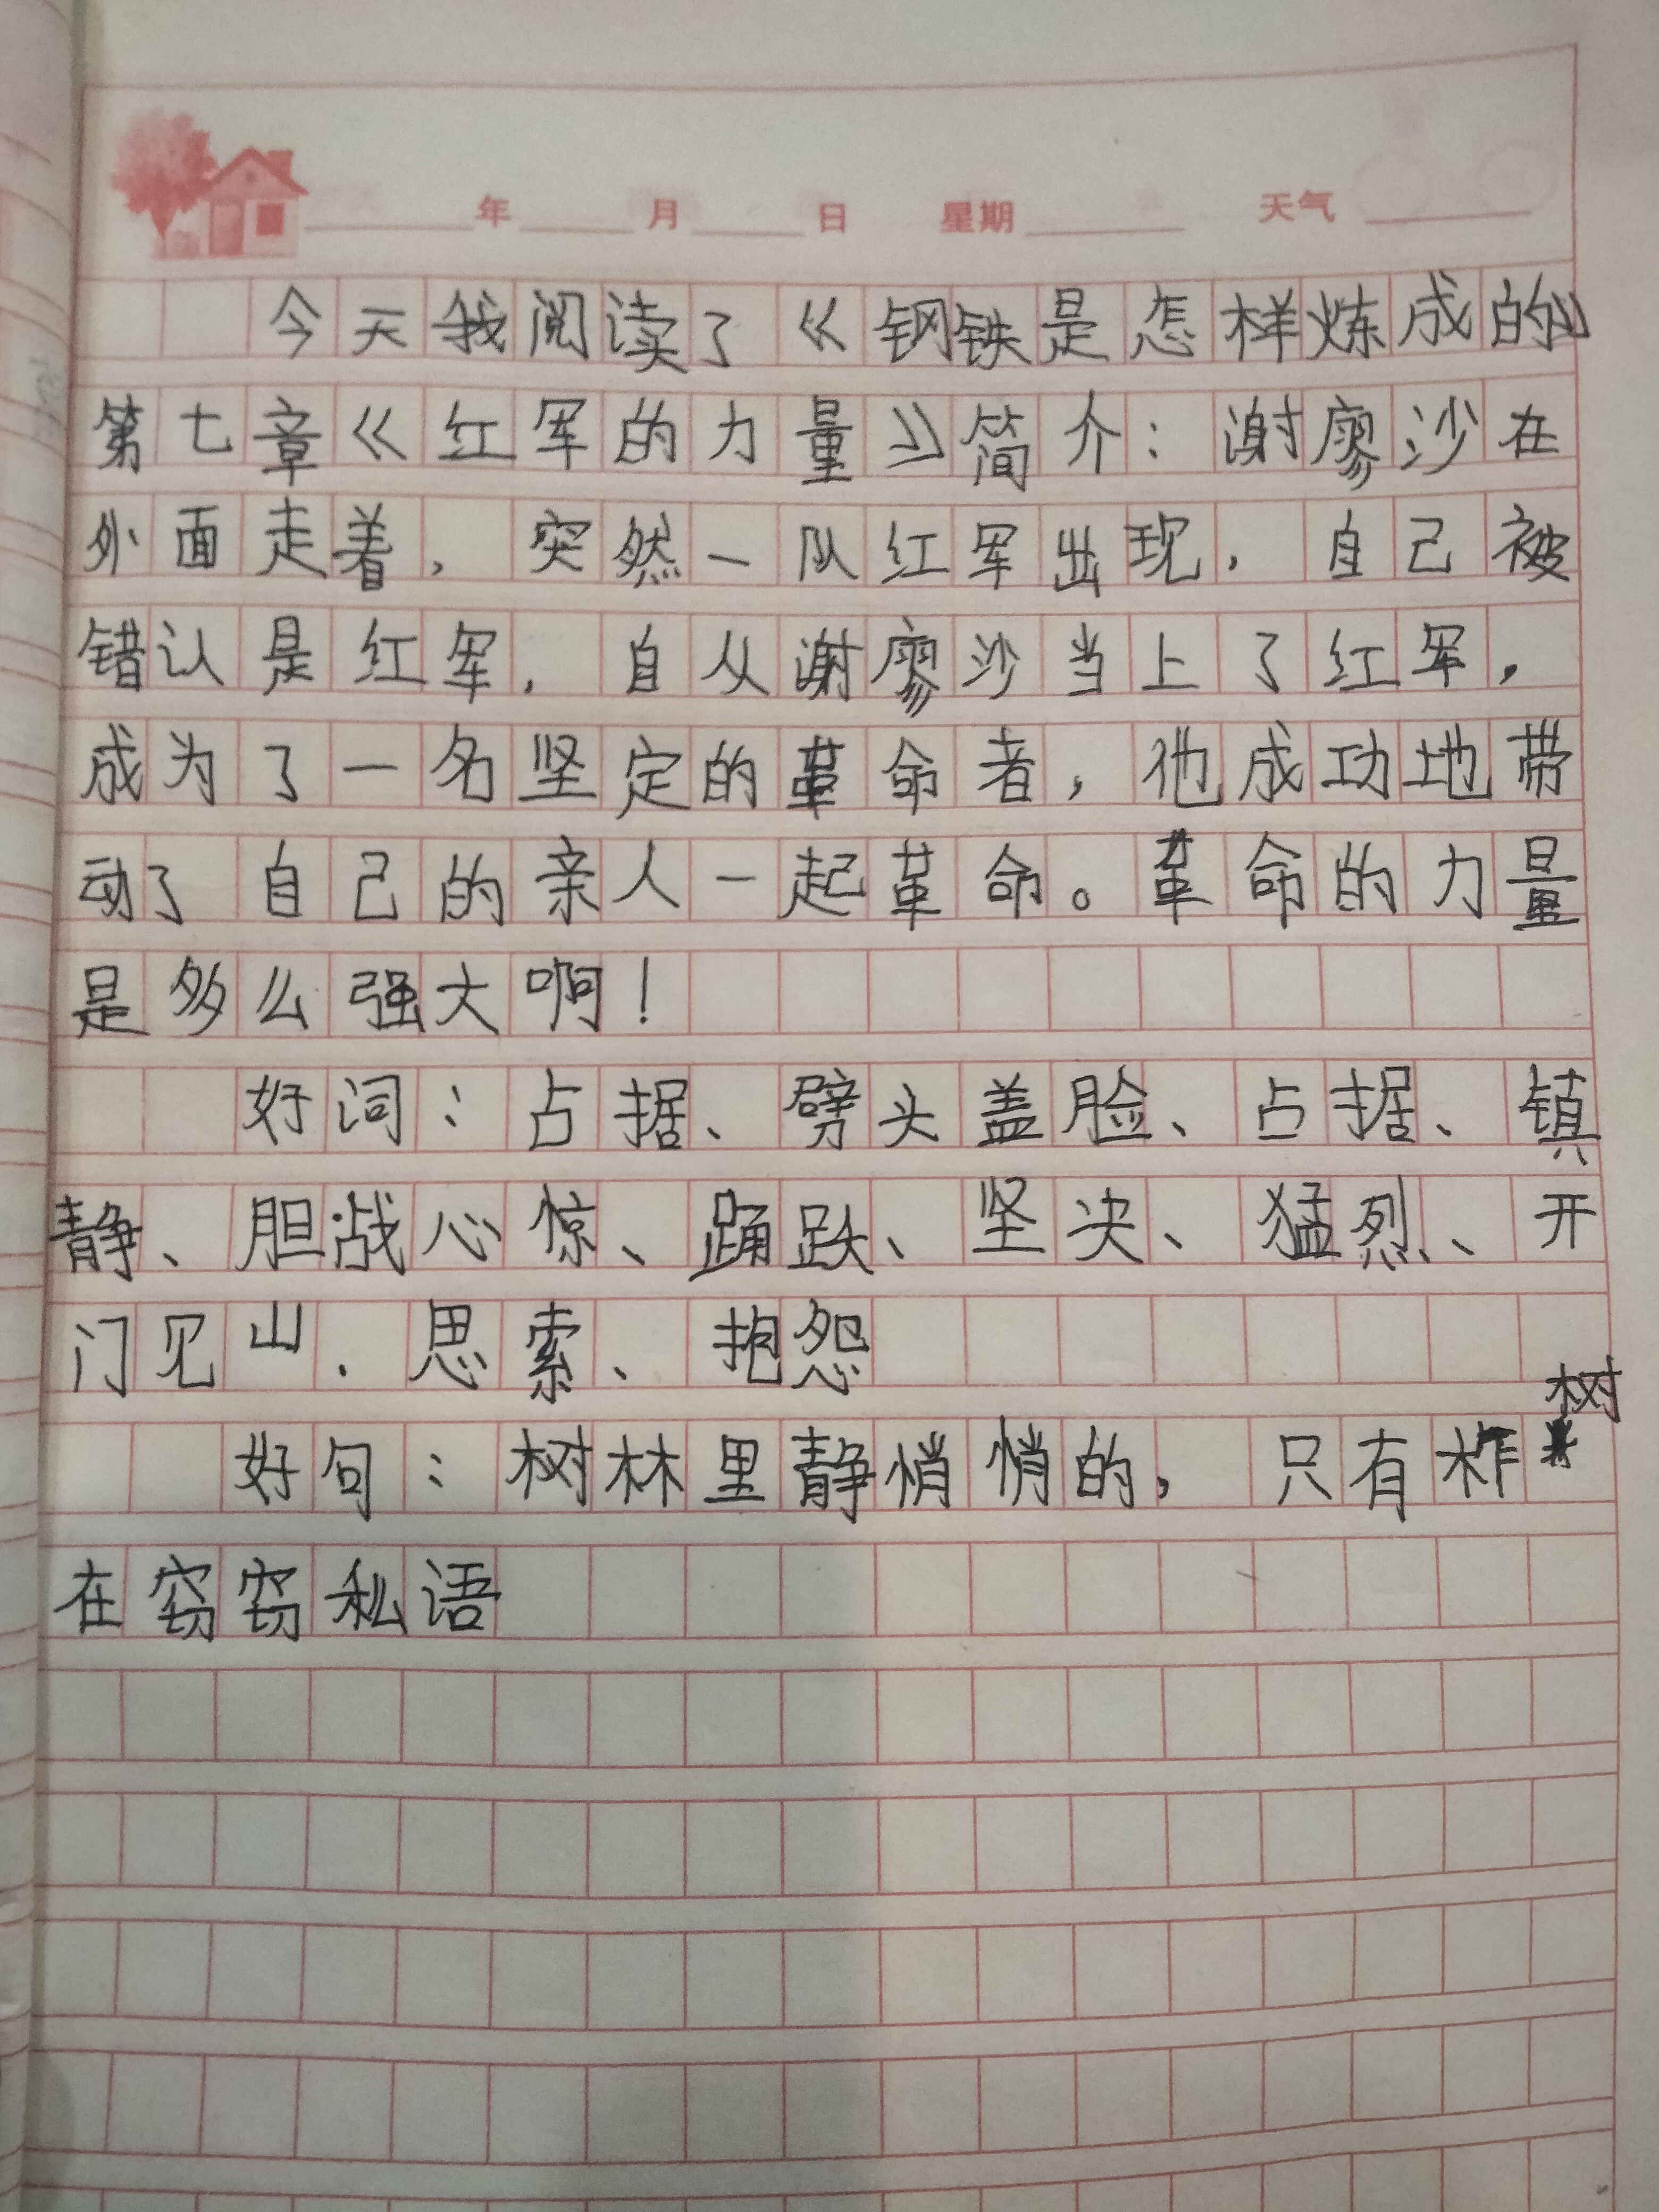 年 月 日 星期 天气
今天我阅读了《钢铁是怎样炼成的》
第七章《红军的力量》简介：谢廖沙在
外面走着，突然一队红军出现，自己被
错认是红军，自从谢廖沙当上了红军，
成为了一名坚定的革命者，他成功地带
动了自己的亲人一起革命。革命的力量
是多么强大啊！
好词：占据、劈头盖脸、占据、镇
静、胆战心惊、踊跃、坚决、猛烈、开
门见山、思索、抱怨
好句：树林里静悄悄的，只有柞树
在窃窃私语